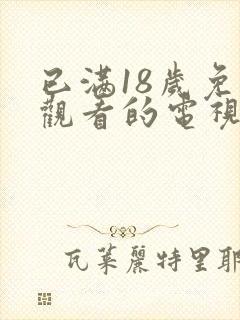 已满18歲免
觀看的電視
瓦萊麗特里耶